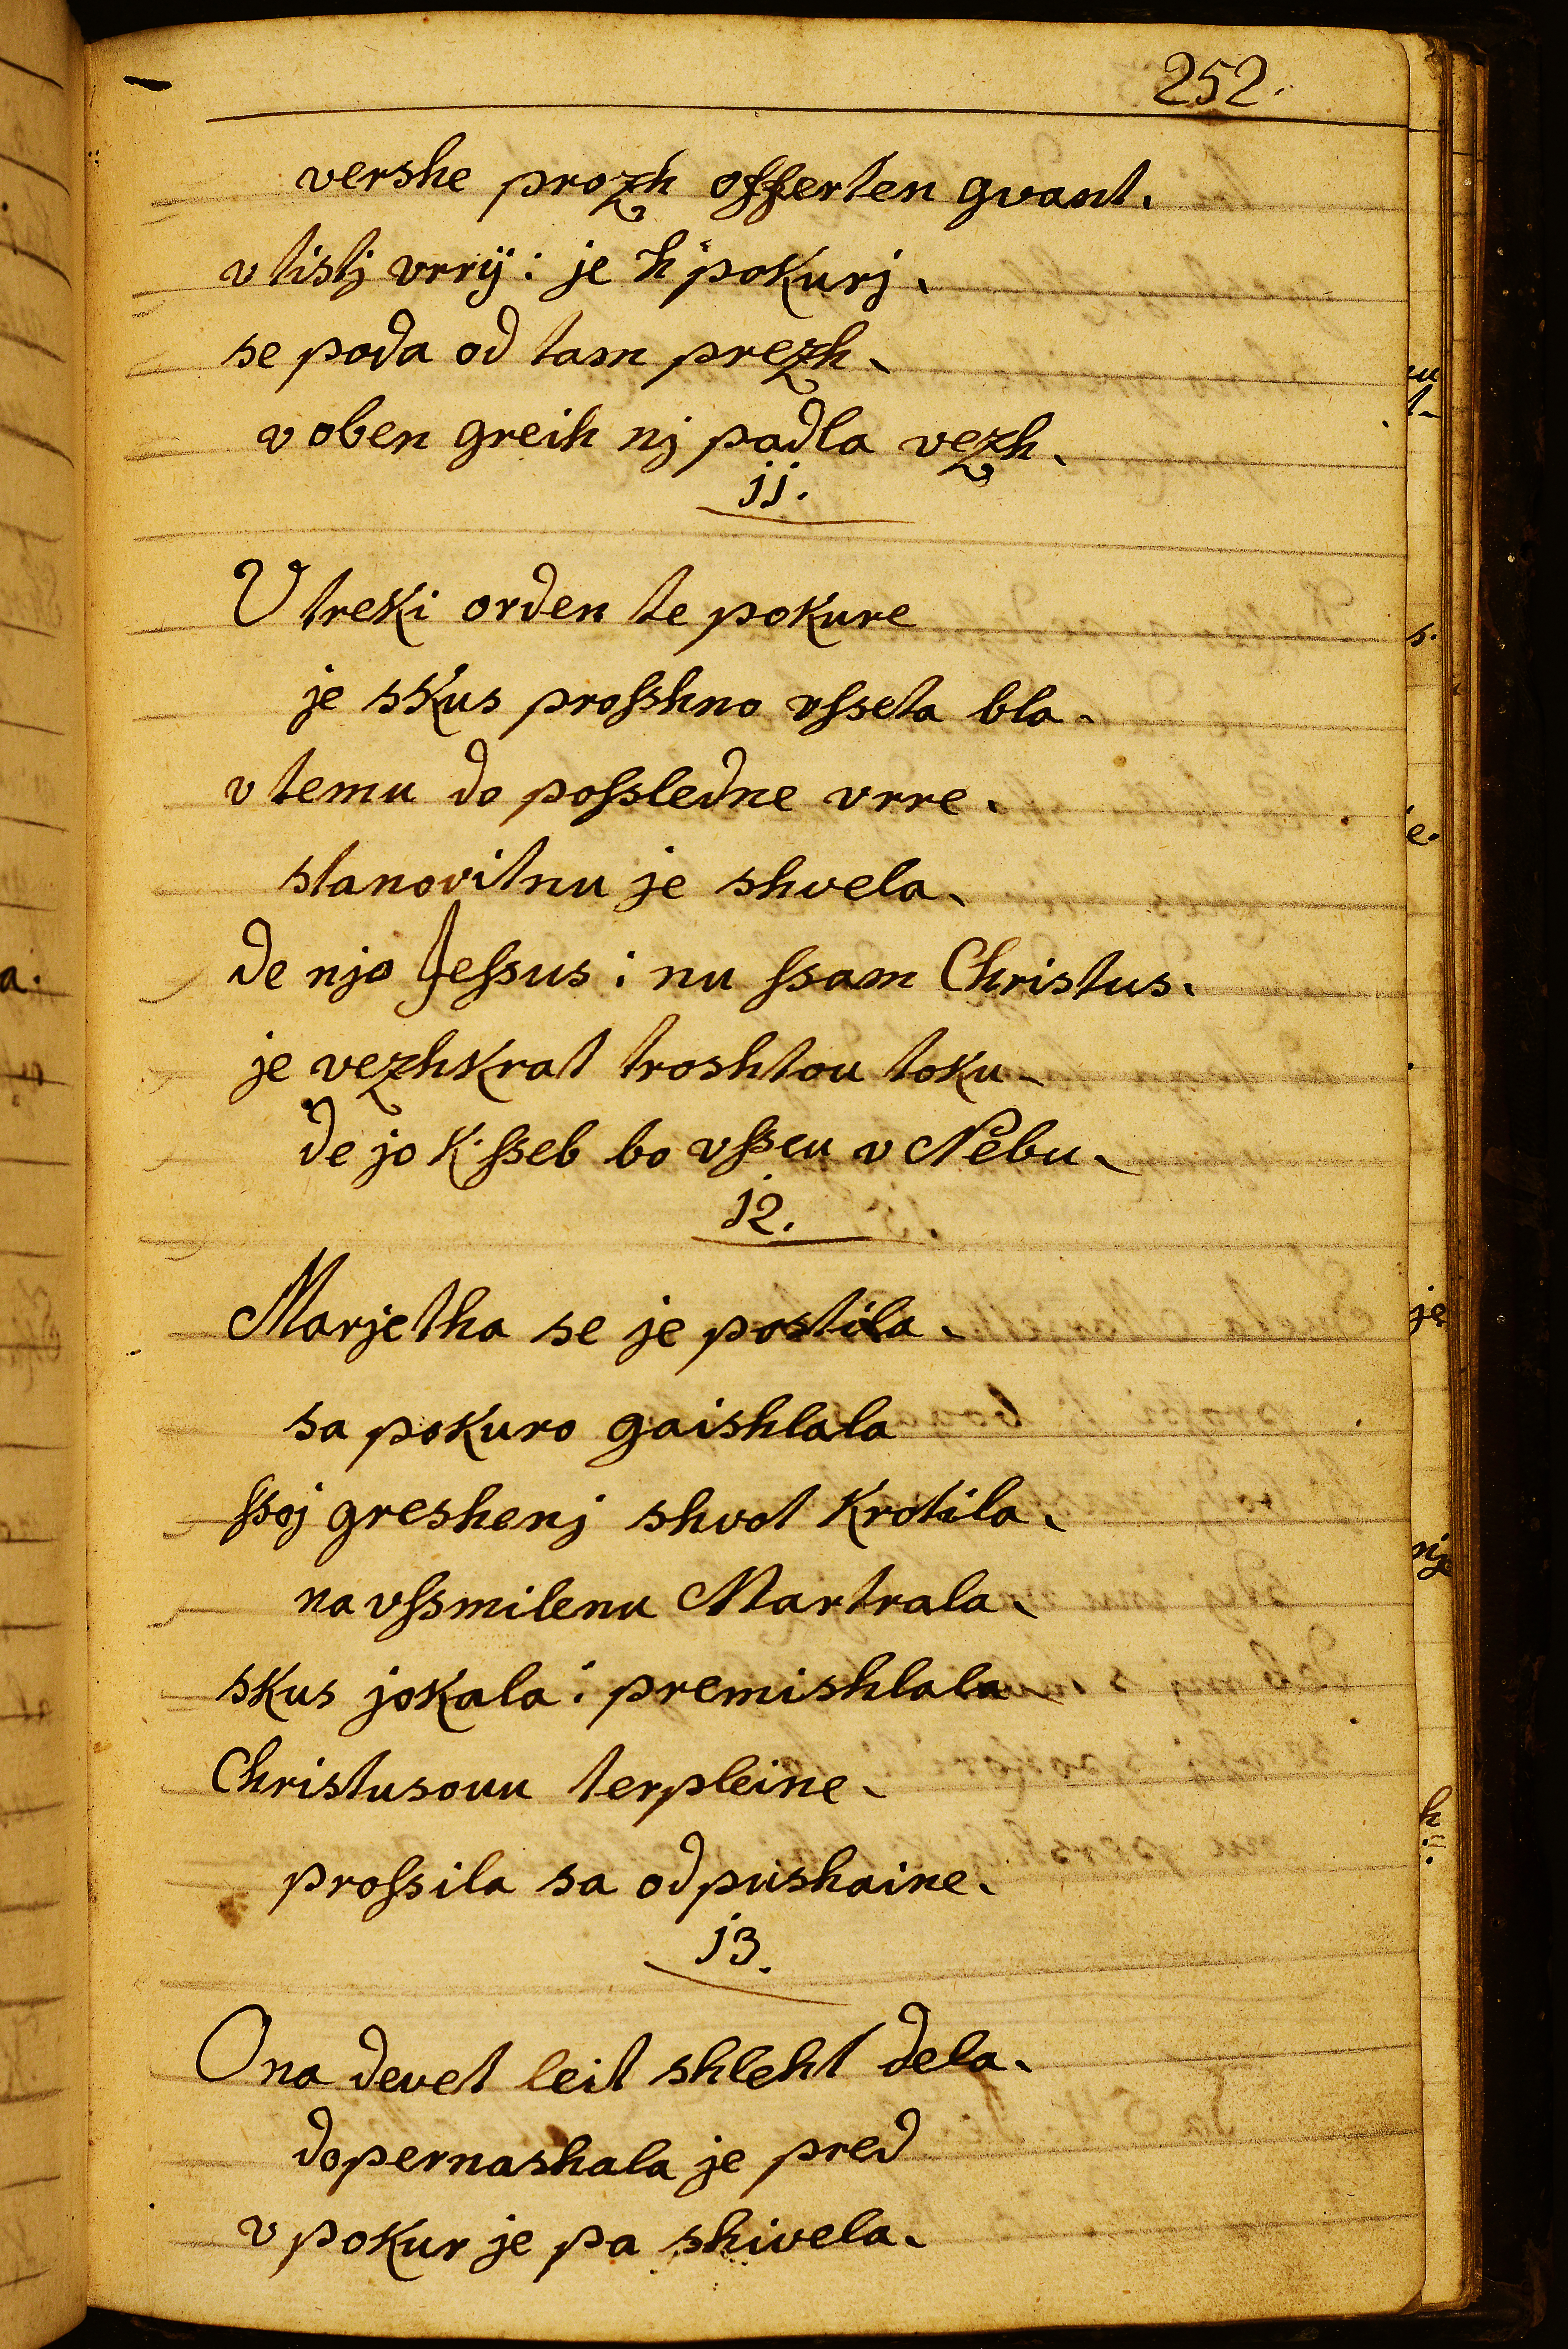 252.
vershe prozh offerten gvant.
v tistj vrrÿ: je k' pokurj.
se poda od tam prezh.
v oben greih nj padla vezh.
jj.
V treki orden te pokure
je skus profshno vfseta bla.
v temu do pofsledne vrre.
stanovitnu je shvela.
de njo Jefsus: nu fsam Christus.
je vezhkrat troshtou toku.
de jo k: fseb bo vfseu v Nebu.
j2.
Marjetha se je postila.
sa pokuro gaishlala
fsoj greshenj shvot krotila.
na vfsmilenu Martrala.
skus jokala: premishlala
Christusouu terpleine.
profsila sa odpushaine.
j3.
Ona devet leit shleht dela.
dopernashala je pred
v pokur je pa shivela.